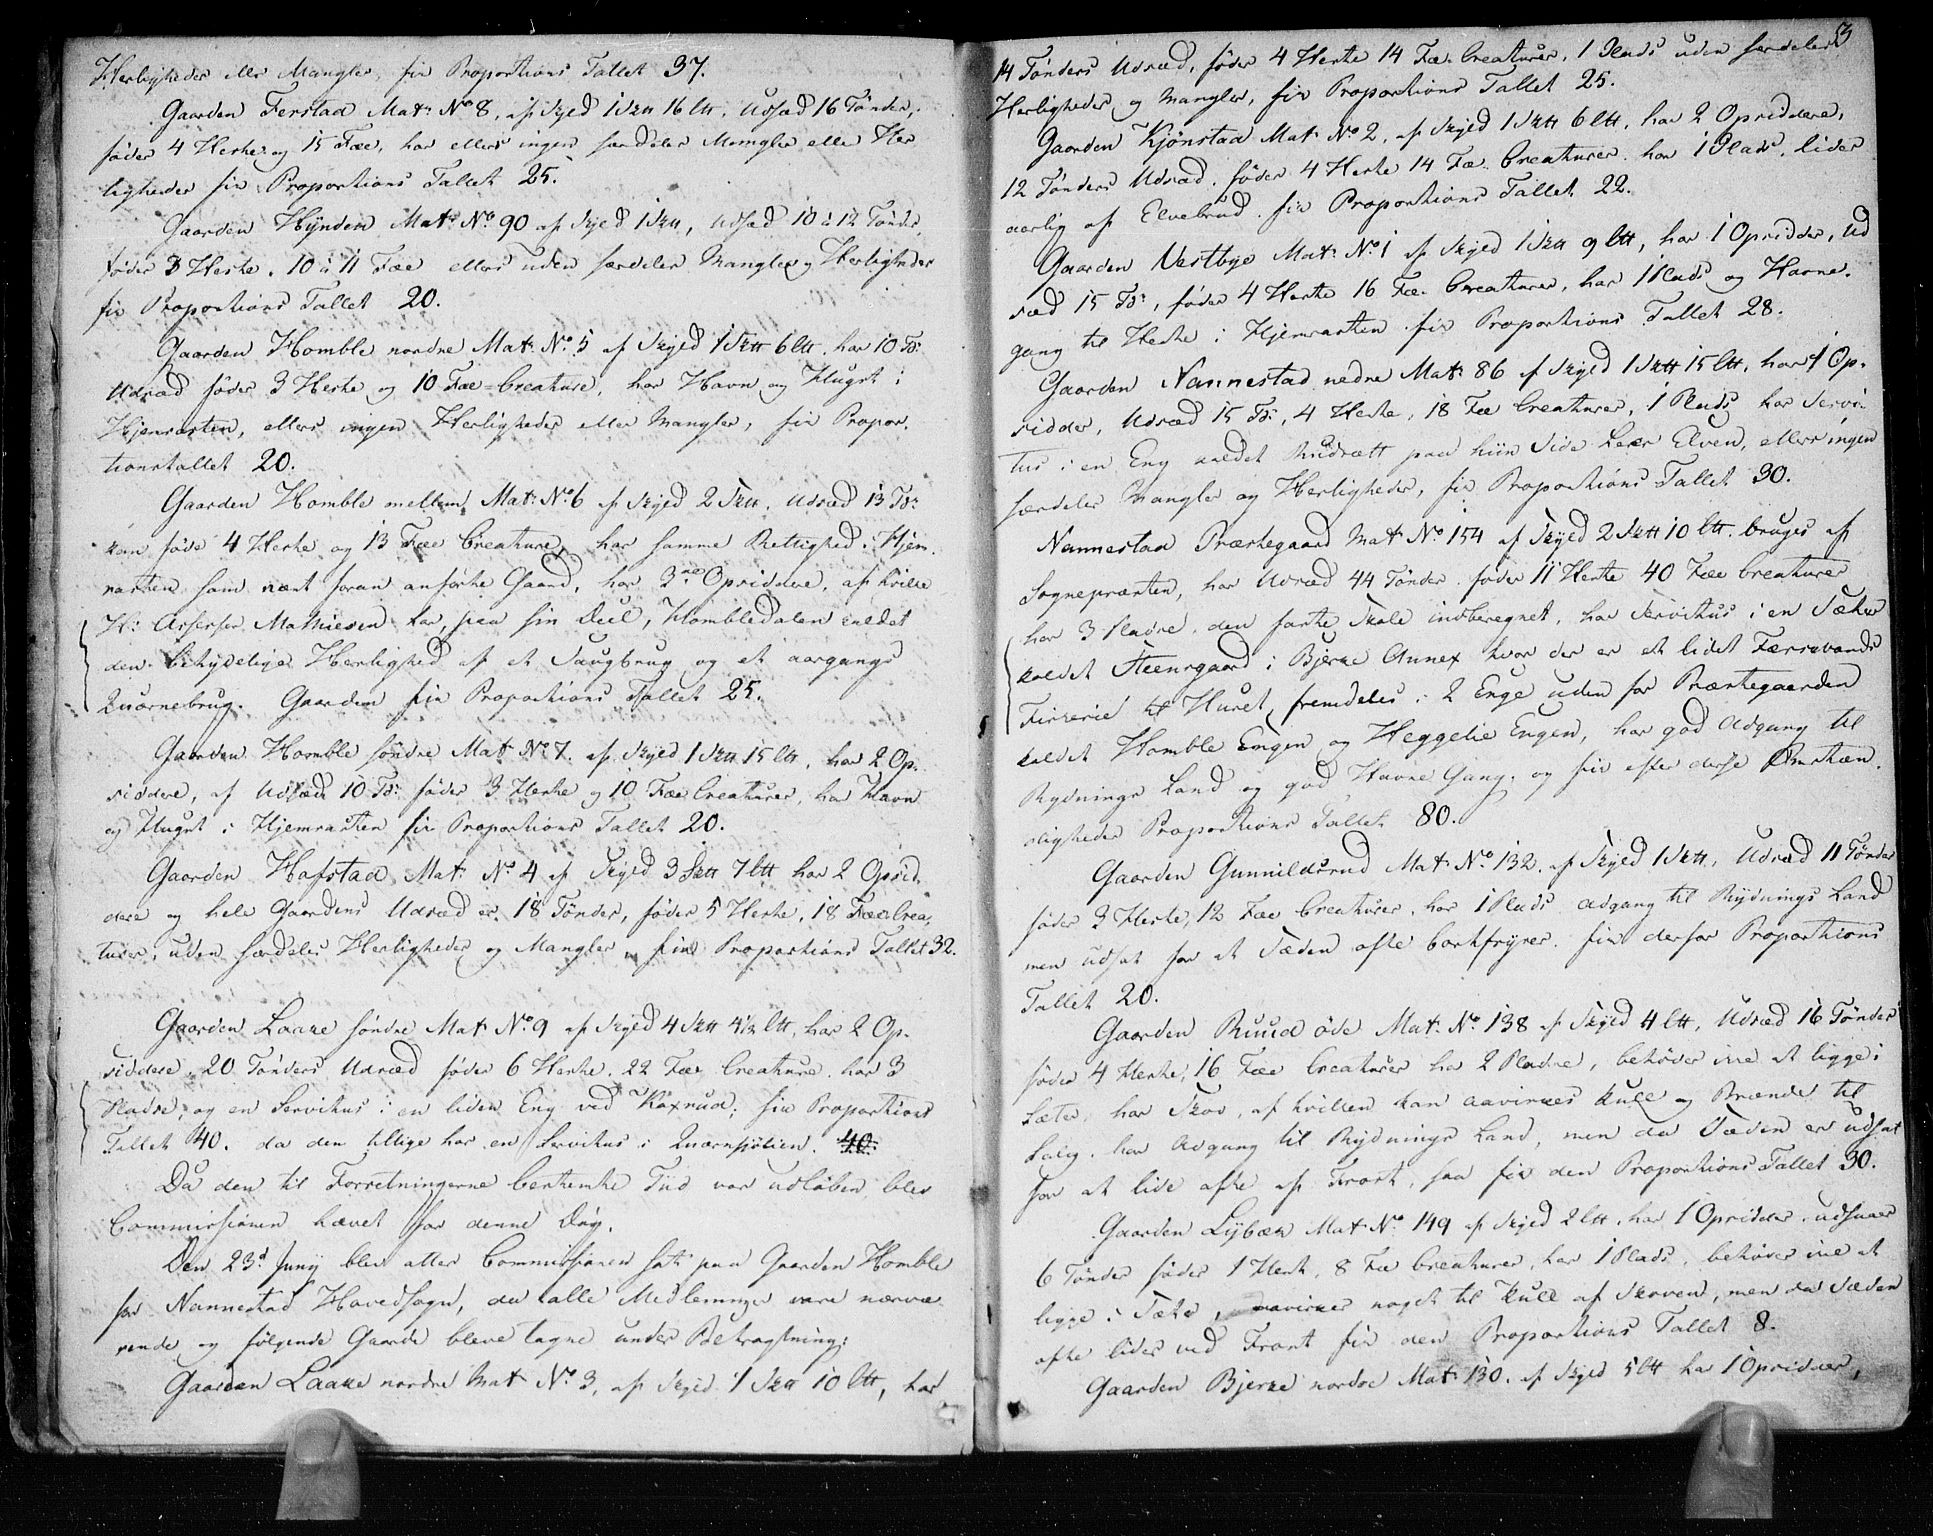 Herligheder eller Mangler, fik Proportions Tallet 37.
Gaarden Ferstad Mat: No 8, af Skyld 1 Sk℔ 16 L℔. Udsæd 16 Tønder,
føder 4 Heste og 15 Fæe, har ellers ingen særdeles Mangler eller Her
ligheder fik Proportions Tallet 25.
Gaarden Hynden Mat: No 90 af Skyld 1 Sk℔, Udsæd 10 à 12 Tønder,
føder 3 Heste, 10 à 11 Fæe ellers uden særdeles Mangler og Herligheder
fik Proportions Tallet 20.
Gaarden Homble nordre Mat: No 5 af Skyld 1 Sk℔ 6 L℔. har 10 Tdr
Udsæd føder 3 Heste og 10 Fæe-Creature, har Havn og Hugst i
Hjemrasten, ellers ingen Herligheder eller Mangler, fik Propor,
tionstallet 20.
Gaarden Homble mellem Mat: No 6 af Skyld 2 Sk℔. Udsæd 13 Tdr
kan føde 4 Heste og 13 Fæe Creature, har samme Rettighed i Hjem
rasten som næst foran anførte Gaard, har 3de Opsiddere, af hvilke
Hr Assessor Mathiesen har paa sin Deel, Hombledalen kaldet
den betydelige Herlighed af et Saugbrug og et aargangs
Quærnebrug. Gaarden fik Proportions Tallet 25.
Gaarden Homble søndre Mat No 7. af Skyld 1 Sk℔ 15 L℔, har 2 Op-
siddere, af Udsæd 10 Tdr føder 3 Heste og 10 Fæe Creaturer, har Havn
og Hugst i Hjemrasten fik Proportions Tallet 20.
Gaarden Hafstad Mat: No 4 af Skyld 3 Sk℔ 7 L℔ har 2 Opsid
dere og hele Gaardens Udsæd er 18 Tønder, føder 5 Heste, 18 Fæe Crea,
turer, uden særdeles Herligheder og Mangler, fik Proportions Tallet 32.
Gaarden Laake søndre Mat No 9 af Skyld 4 Sk℔ 4½ L℔, har 2 Op-
siddere, 20 Tønders Udsæd føder 6 Heste, 22 Fæe Creature, har 3
Pladse, og en Servitus i en liden Eng ved Kaxrud, fik Proportions
Tallet 40. da den tillige har en Servitus i
Da den til Forretningerne bestemte Tiid var udløben, blev
Commissionen hævet for denne Dag.
Den 23d Juny blev atter Commissionen sat paa Gaarden Homble
for Nannestad Hovedsogn, da alle Medlemmer vare nærvæ
rende og følgende Gaarde bleve tagne under Betragtning:
Gaarden Laake nordre Mat No 3, af Skyld 1 Sk℔ 10 L℔, har
3
14 Tønders Udsæd, føder 4 Heste 14 Fæe Creaturer, 1 Plads uden særdeles
Herligheder og Mangler, fik Proportions Tallet 25.
Gaarden Kjønstad Mat: No 2, af Skyld 1 Sk℔ 6 L℔, har 2 Opsiddere,
12 Tønders Udsæd, føder 4 Heste 14 Fæe Creaturer har 1 Plads, lider
aarlig af Elvebrud fik Proportions Tallet 22.
Gaarden Vestbye Mat: No 1 af Skyld 1 Sk℔ 9 L℔, har 1 Opsidder, Ud
sæd 15 Tdr, føder 4 Heste 16 Fæe Creaturer, har 1 Plads og Havne-
gang til Heste i Hjemrasten fik Proportions Tallet 28.
Gaarden Nannestad nedre Mat: 86 af Skyld 1 Sk℔ 15 L℔, har 1 Op-
sidder, Udsæd 15 Tdr, 4 Heste, 18 Fæe Creaturer, 1 Plads har Servi-
tus i en Eng kaldet paa hiin Side Leer Elven, ellers ingen
særdeles Mangler og Herligheder, fik Proportions Tallet 30.
Nannestad Præstegaard Mat No 154 af Skyld 2 Sk℔ 10 L℔. bruges af
Sognepræsten, har Udsæd 44 Tønder. føder 11 Heste 40 Fæe Creaturer
har 3 Pladse, den faste Skole indberegnet, har Servitus i en Sæter
kaldet Steensgaard i Bjerke Annex hvor der er et lidet Færskvands
Fiskerie til Huset, fremdeles i 2 Enge uden for Præstegaarden
kaldet Homble Engen og Heggelie Engen, har god Adgang til
Rydnings Land og god Havne Gang, og fik efter disse Omstæn-
digheder Proportions Tallet 80.
Gaarden Gunnildsrud Mat No 132. af Skyld 1 Sk℔, Udsæd 11 Tønder
føder 3 Heste, 12 Fæe Creaturer, har 1 Plads Adgang til Rydnings Land
men udsat for at Sæden ofte bortfryser. fik derfor Proportions
Tallet 20.
Gaarden Ruud øde Mat: No 138 af Skyld 4 L℔, Udsæd 16 Tønder
føder 4 Heste, 16 Fæe Creaturer har 2 Pladse, behøver ikke at ligge i
Sæter, har Skov, af hvilken kan aavirkes Kull og Brænde til
Salg, har Adgang til Rydnings Land, men da Sæden er udsat
for at lide ofte af Frost, saa fik den Proportions Tallet 30.
Gaarden Lybæk Mat No 149 af Skyld 2 L℔, har 1 Opsidder, udsaaer
6 Tønder føder 1 Hest, 8 Fæe Creaturer, har 1 Plads, behøver ikke at
ligge i Sæter, aavirkes noget til Kull af Skoven, men da Sæden
ofte lider ved Frost fik den Proportions Tallet 8.
Gaarden Bjerke nordre Mat: 130. af Skyld 5 L℔ har 1 Opsidder,